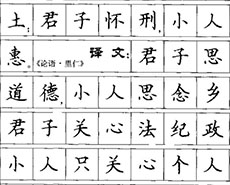 土;君子怀刑,小人
惠。《论语·里仁》译文:君子思
道德,小人思念乡
君子关心法纪政
小人只关心个人